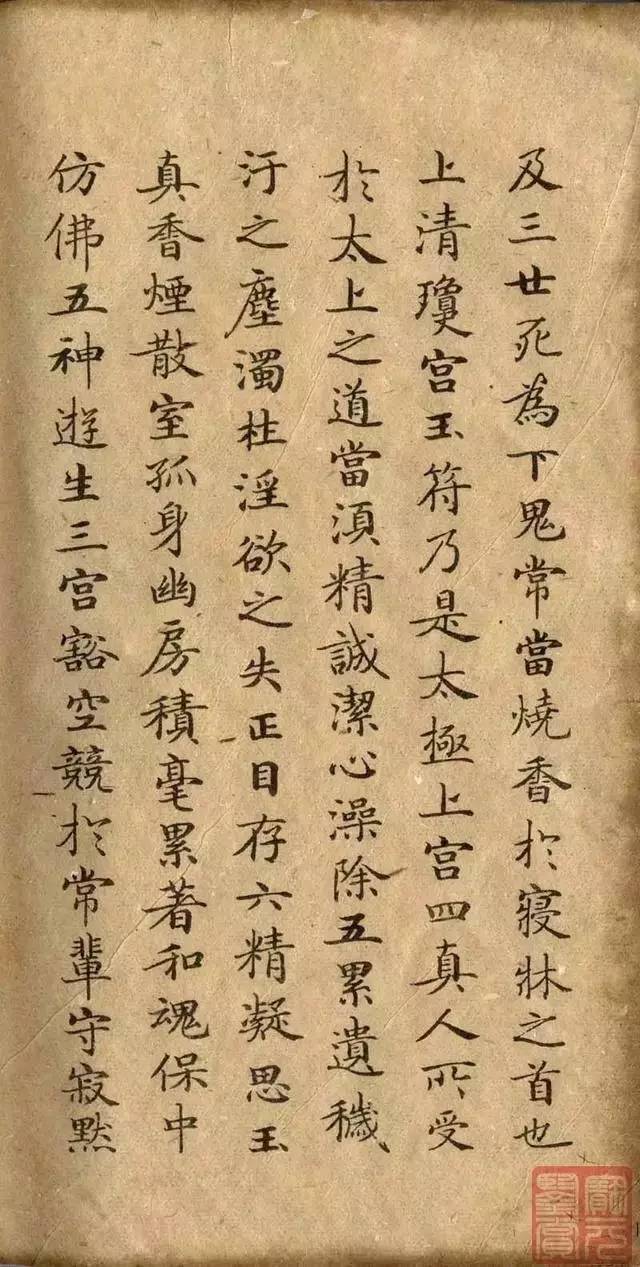 及三廿死為下鬼常當燒香於寢牀之首也
上清瓊宮玉符乃是太極上宮四真人所受
於太上之道當須精誠潔心澡除五累遺穢
汙之塵濁杜淫欲之失正目存六精凝思玉
真香煙散室孤身幽房積毫累著和魂保中
仿佛五神遊生三宮豁空競於常輩守寂默